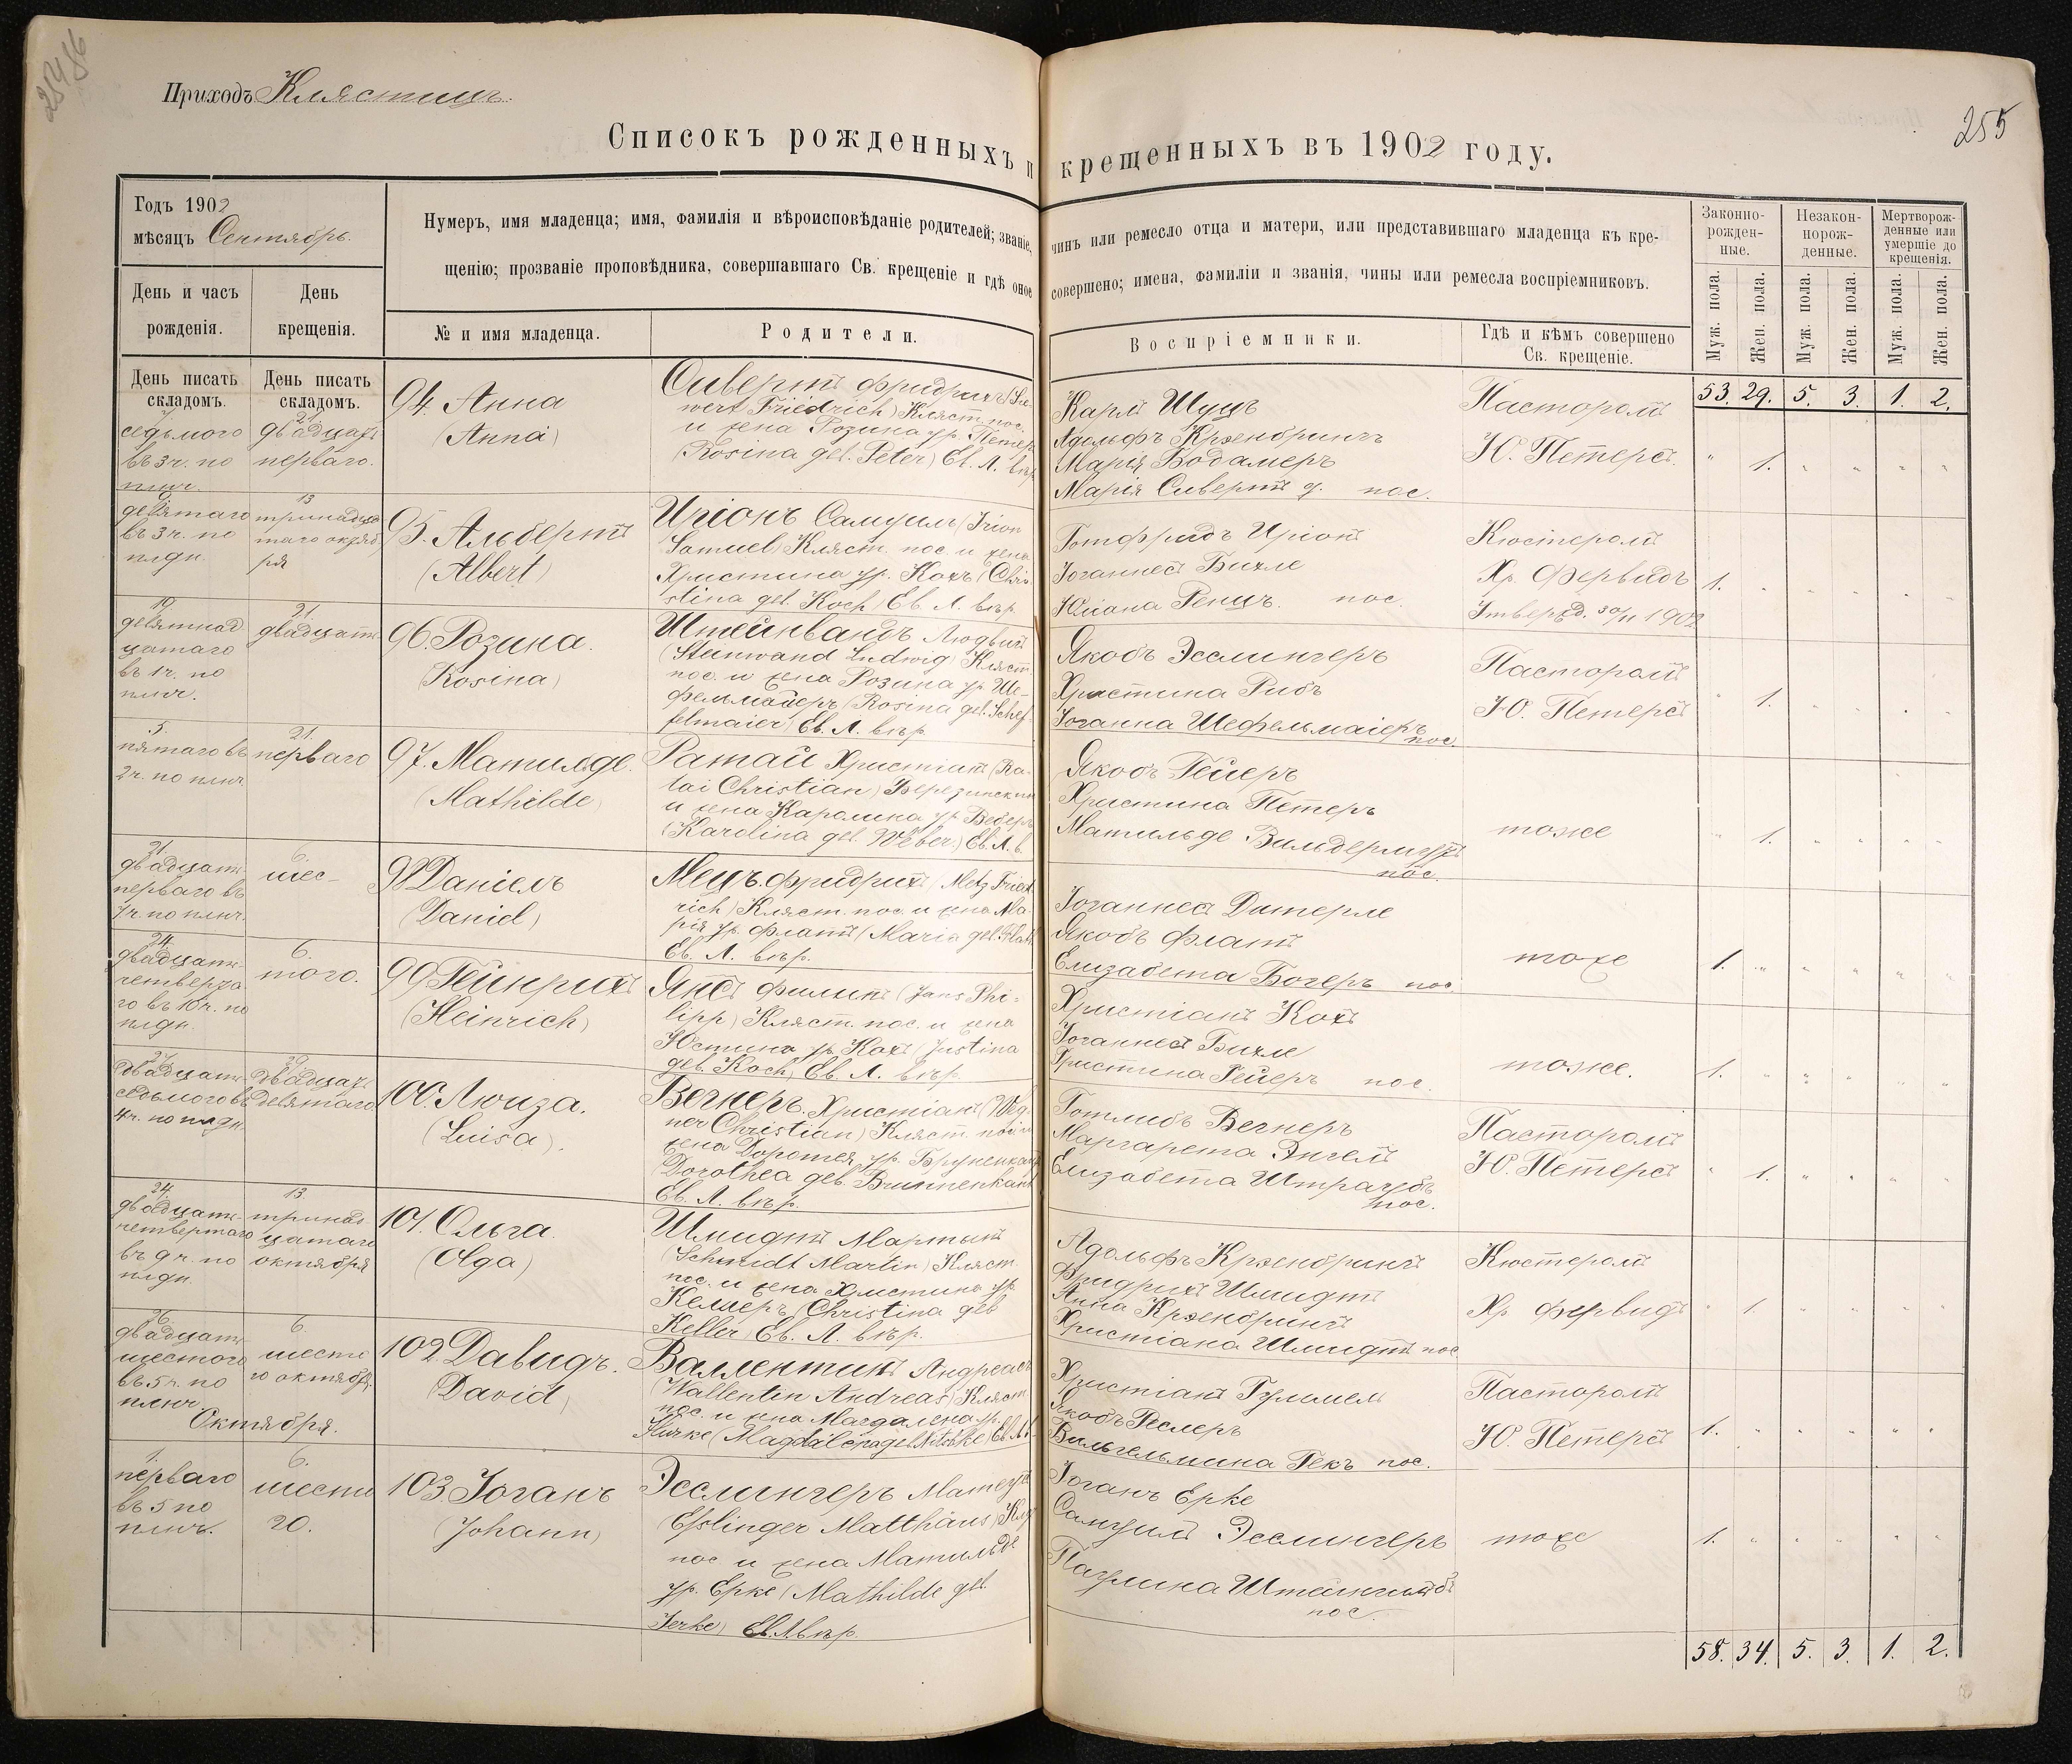 Приходъ Клястицъ.
255
Списокъ рожденныхъ и крещенныхъ въ 1902 году.
Годъ 1902
мѣсяцъ Сентябрь.
Нумеръ, имя младенца; имя, фамилія и вѣроисповѣданіе родителей; званіе, чинъ или ремесло отца и матери, или представившаго младенца къ кре-
щенію; прозваніе проповѣдника, совершавшаго Св. крещеніе и гдѣ оное совершено; имена, фамиліи и званія, чины или ремесла воспріемниковъ.
День и часъ
рожденія.
День
крещенія.
№ и имя младенца.
Родители.
Воспріемники.
Гдѣ и кѣмъ совершено
Св. крещеніе.
Законно-
рожден-
ные.
Незакон-
норож-
денные.
Мертворож-
денные или
умершіе до
крещенія.
Муж. пола.
Жен. пола.
Муж. пола.
Жен. пола.
Муж. пола.
Жен. пола.
День писать
складомъ.
День писать
складомъ.
53. 29. 5. 3. 1. 2.
7
седьмого
въ 3 ч. по
плнч.
21
двадцать
перваго.
94. Анна
(Anna)
Сивертъ Фридрихъ (Sie-
wert Friedrich) Кляст. пос.
и жена Розина ур. Петеръ
(Rosina geb. Peter) Ев. Л. вѣр.
Карлъ Шуцъ
Адольфъ Крэенбринкъ
Марія Бодамеръ
Марія Сивертъ д. пос.
Пасторомъ
Ю. Петерсъ.
1.
9
девятаго
въ 3 ч. по
плдн.
13
тринадца
таго октяб
ря
95. Альбертъ
(Albert)
Иріонъ Самуилъ (Irion
Samuel) Кляст. пос. и жена
Христина ур. Кохъ (Chri-
stina geb. Koch) Ев. Л. вѣр.
Готфридъ Иріонъ
Іоганнесъ Бихле
Юліана Ренцъ. пос.
Кюстеромъ
Хр. Фервидъ
Утвержд. 30/11 1902
1.
19.
девятнад
цатаго
въ 1 ч. по
плнч.
21.
двадцать
96. Розина.
(Rosina)
Штейнвандъ Людвигъ
(Steinwand Ludwig) Кляст.
пос. и жена Розина ур. Ше-
фелмайеръ (Rosina geb. Schef-
felmaier) Ев. Л. вѣр.
Якобъ Эсслингеръ
Христина Рибъ
Іоганна Шефельмаіеръ
пос.
Пасторомъ
Ю. Петерсъ
1.
5.
пятаго въ
2 ч. по плнч.
21.
перваго
97. Матильде.
(Mathilde)
Ратай Христіанъ (Ra-
tai Christian) Березинскій
и жена Каролина ур. Веберъ
(Karolina geb. Weber.) Ев. Л. в.
Якобъ Гейеръ
Христина Петеръ
Матильде Вильдермутъ
пос.
тоже
1.
21.
двадцать
перваго въ
7 ч. по плнч.
6.
шес-
98 Даніелъ
(Daniel)
Мецъ Фридрихъ (Metz Fried-
rich) Кляст. пос. и жена Ма-
рія ур. Флатъ (Maria geb. Flath)
Ев. Л. вѣр.
Іоганнесъ Дитерле
Якобъ Флатъ
Елизабета Богеръ пос.
тоже
1.
24.
двадцать
четверта
го въ 10 ч. по
плдн.
6.
того.
99 Гейнрихъ
(Heinrich)
Янсъ Филипъ (Jans Phi-
lipp) Кляст. пос. и жена
Юстина ур. Кохъ (Justina
geb. Koch) Ев. Л. вѣр.
Христіанъ Кохъ
Іоганнесъ Бихле
Христина Гейеръ пос.
тоже.
1.
27.
двадцать
седьмого въ
4 ч. по плдн.
29.
двадцать
девятаго
100. Люиза.
(Luisa).
Вегнеръ Христіанъ (Weg-
ner Christian) Кляст. пос. и
жена Доротея ур. Бруненкантъ
(Dorothea geb. Brunnenkant)
Ев. Л. вѣр.
Готлибъ Вегнеръ
Маргарета Энгелъ
Елизабета Штраубъ
пос.
Пасторомъ
Ю. Петерсъ
1.
24.
двадцать
четвертаго
въ 9 ч. по
плдн.
13.
тринад-
цатаго
октября
101. Ольга
(Olga)
Шмидтъ Мартынъ
(Schmidt Martin) Кляст.
пос. и жена Христина ур.
Келлеръ (Christina geb
Keller) Ев. Л. вѣр.
Адольфъ Крэенбринкъ
Фридрихъ Шмидтъ
Анна Крэенбринкъ
Христіана Шмидтъ пос.
Кюстеромъ
Хр. Фервидъ
1.
26.
двадцать
шестого
въ 5 ч. по
плнч.
6.
шесто
го октября.
102. Давидъ.
(David)
Валлентинъ Андреасъ
(Wallentin Andreas) Кляст.
пос. и жена Магдалена ур.
Христіанъ Гуммелъ
Якобъ Реслеръ
Вильгельмина Гекъ пос.
Пасторомъ
Ю. Петерсъ
1.
Октября.
1.
перваго
въ 5 по
плнч.
6.
шесто
го.
103. Іоганъ
(Johann)
Эсслингеръ Матеусъ
(Esslinger Matthäus) Кля
пос и жена Матильде
ур. Ерке (Mathilde geb.
Jerke) Ев. Л. вѣр.
Іоганъ Ерке
Самуилъ Эсслингеръ
Паулина Штейнгильбъ
пос.
тоже
1.
58. 34. 5. 3. 1. 2.